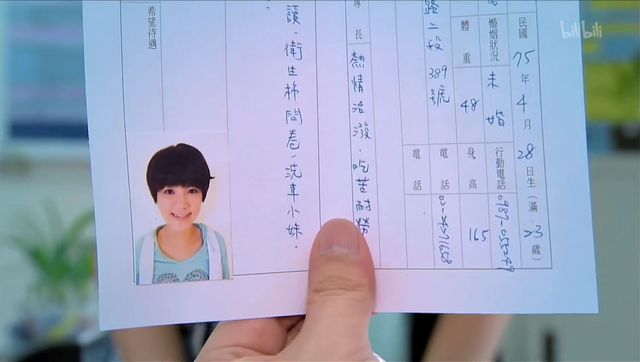 民國75年4月28日生(滿23歲)
婚姻狀況 未婚 行動電話
體重 48 身高 165
路二段389號
電話
電話
專長 熱情活潑、吃苦耐勞
讀、衛生棉問卷、洗車小妹。
希望待遇
bilibili